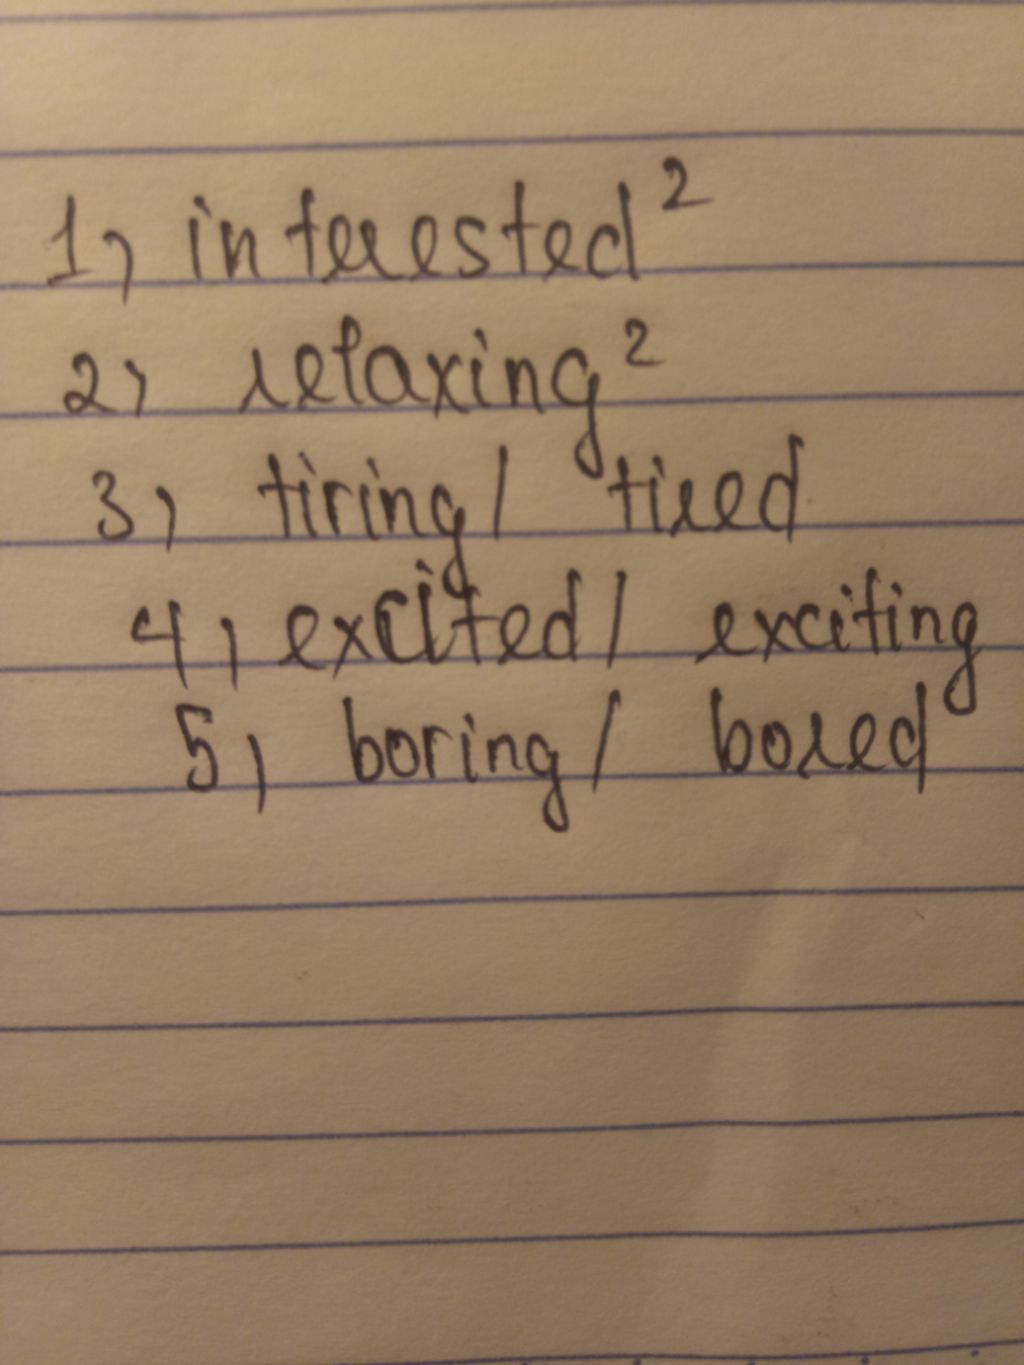 1, interested²
2, relaxing²
3, tiring/ tired
4, excited/ exciting
5, boring/ bored